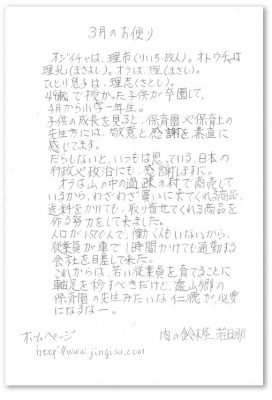 3月のお便り
オジイチャは、理市(りいち・故人)。オトウチャは
理孔(まさよし)。オラは、理(まさし)。
ひとり息子は、理志(さとし)。
49歳で授かった子供が卒園して、
4月から小学一年生。
子供の成長を見ると、保育園や保育士の
先生方には、敬意と感謝を素直に
感じてます。
だらしないと、いつもは思っている、日本の
行政や政治にも、感謝しますに。
オラは山の中の過疎の村で商売して
いるから、わざわざ買いに来てくれる商品、
送料をかけても、取り寄せてくれる商品を
作る努力をして来ました。
人口が1500人で、働く人もいないから、
従業員が車で1時間かけても通勤する
会社を目差して来た。
これからは、若い従業員を育てることに
軸足を移すべきだけど、遠山郷の
保育園の先生みたいな仁徳が必要
になるなー。
ホームページ 肉の鈴木屋 若旦那
http://www.jingisu.com/